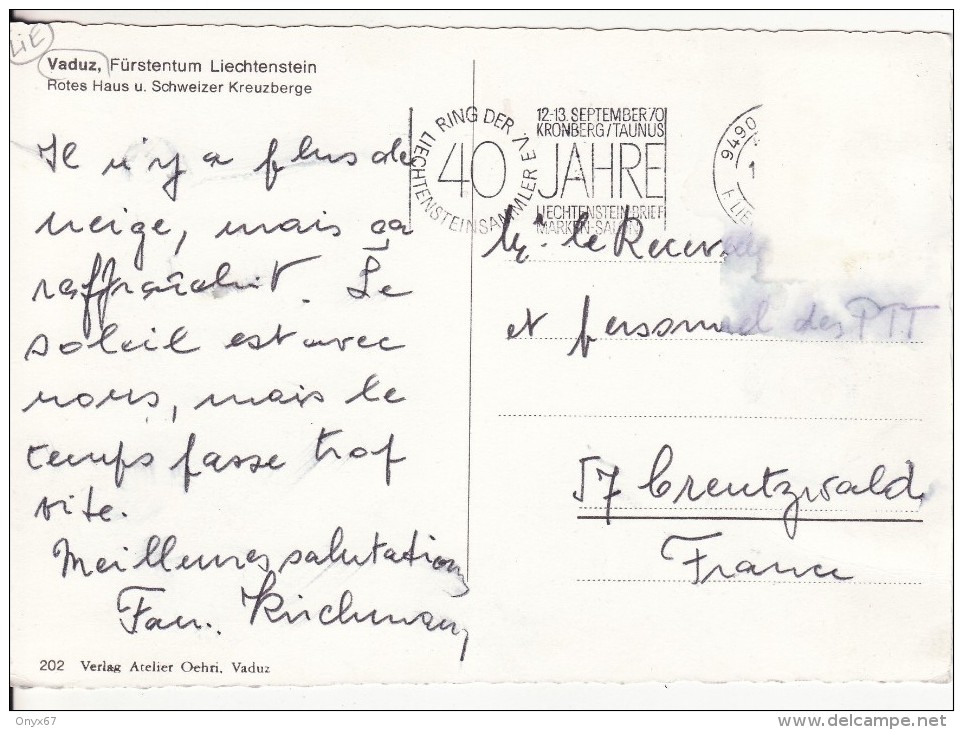 LiE
Vaduz, Fürstentum Liechtenstein
Rotes Haus u. Schweizer Kreuzberge
Il n'y a plus de
neige, mais ça
raffraîchit. Le
soleil est avec
nous, mais le
temps passe trop
vite.
Meilleures salutations
Fam. Kirchmann
202 Verlag Atelier Oehri, Vaduz
RING DER LIECHTENSTEINSAMMLER E.V.
40 JAHRE
12.-13. SEPTEMBER 70
KRONBERG/TAUNUS
LIECHTENSTEIN-BRIEF
MARKEN-SALON
9490
1
FLIE
Mr. le Receveur
et personnel des PTT
57 Creutzwald
France
Onyx67
http://www.delcampe.net